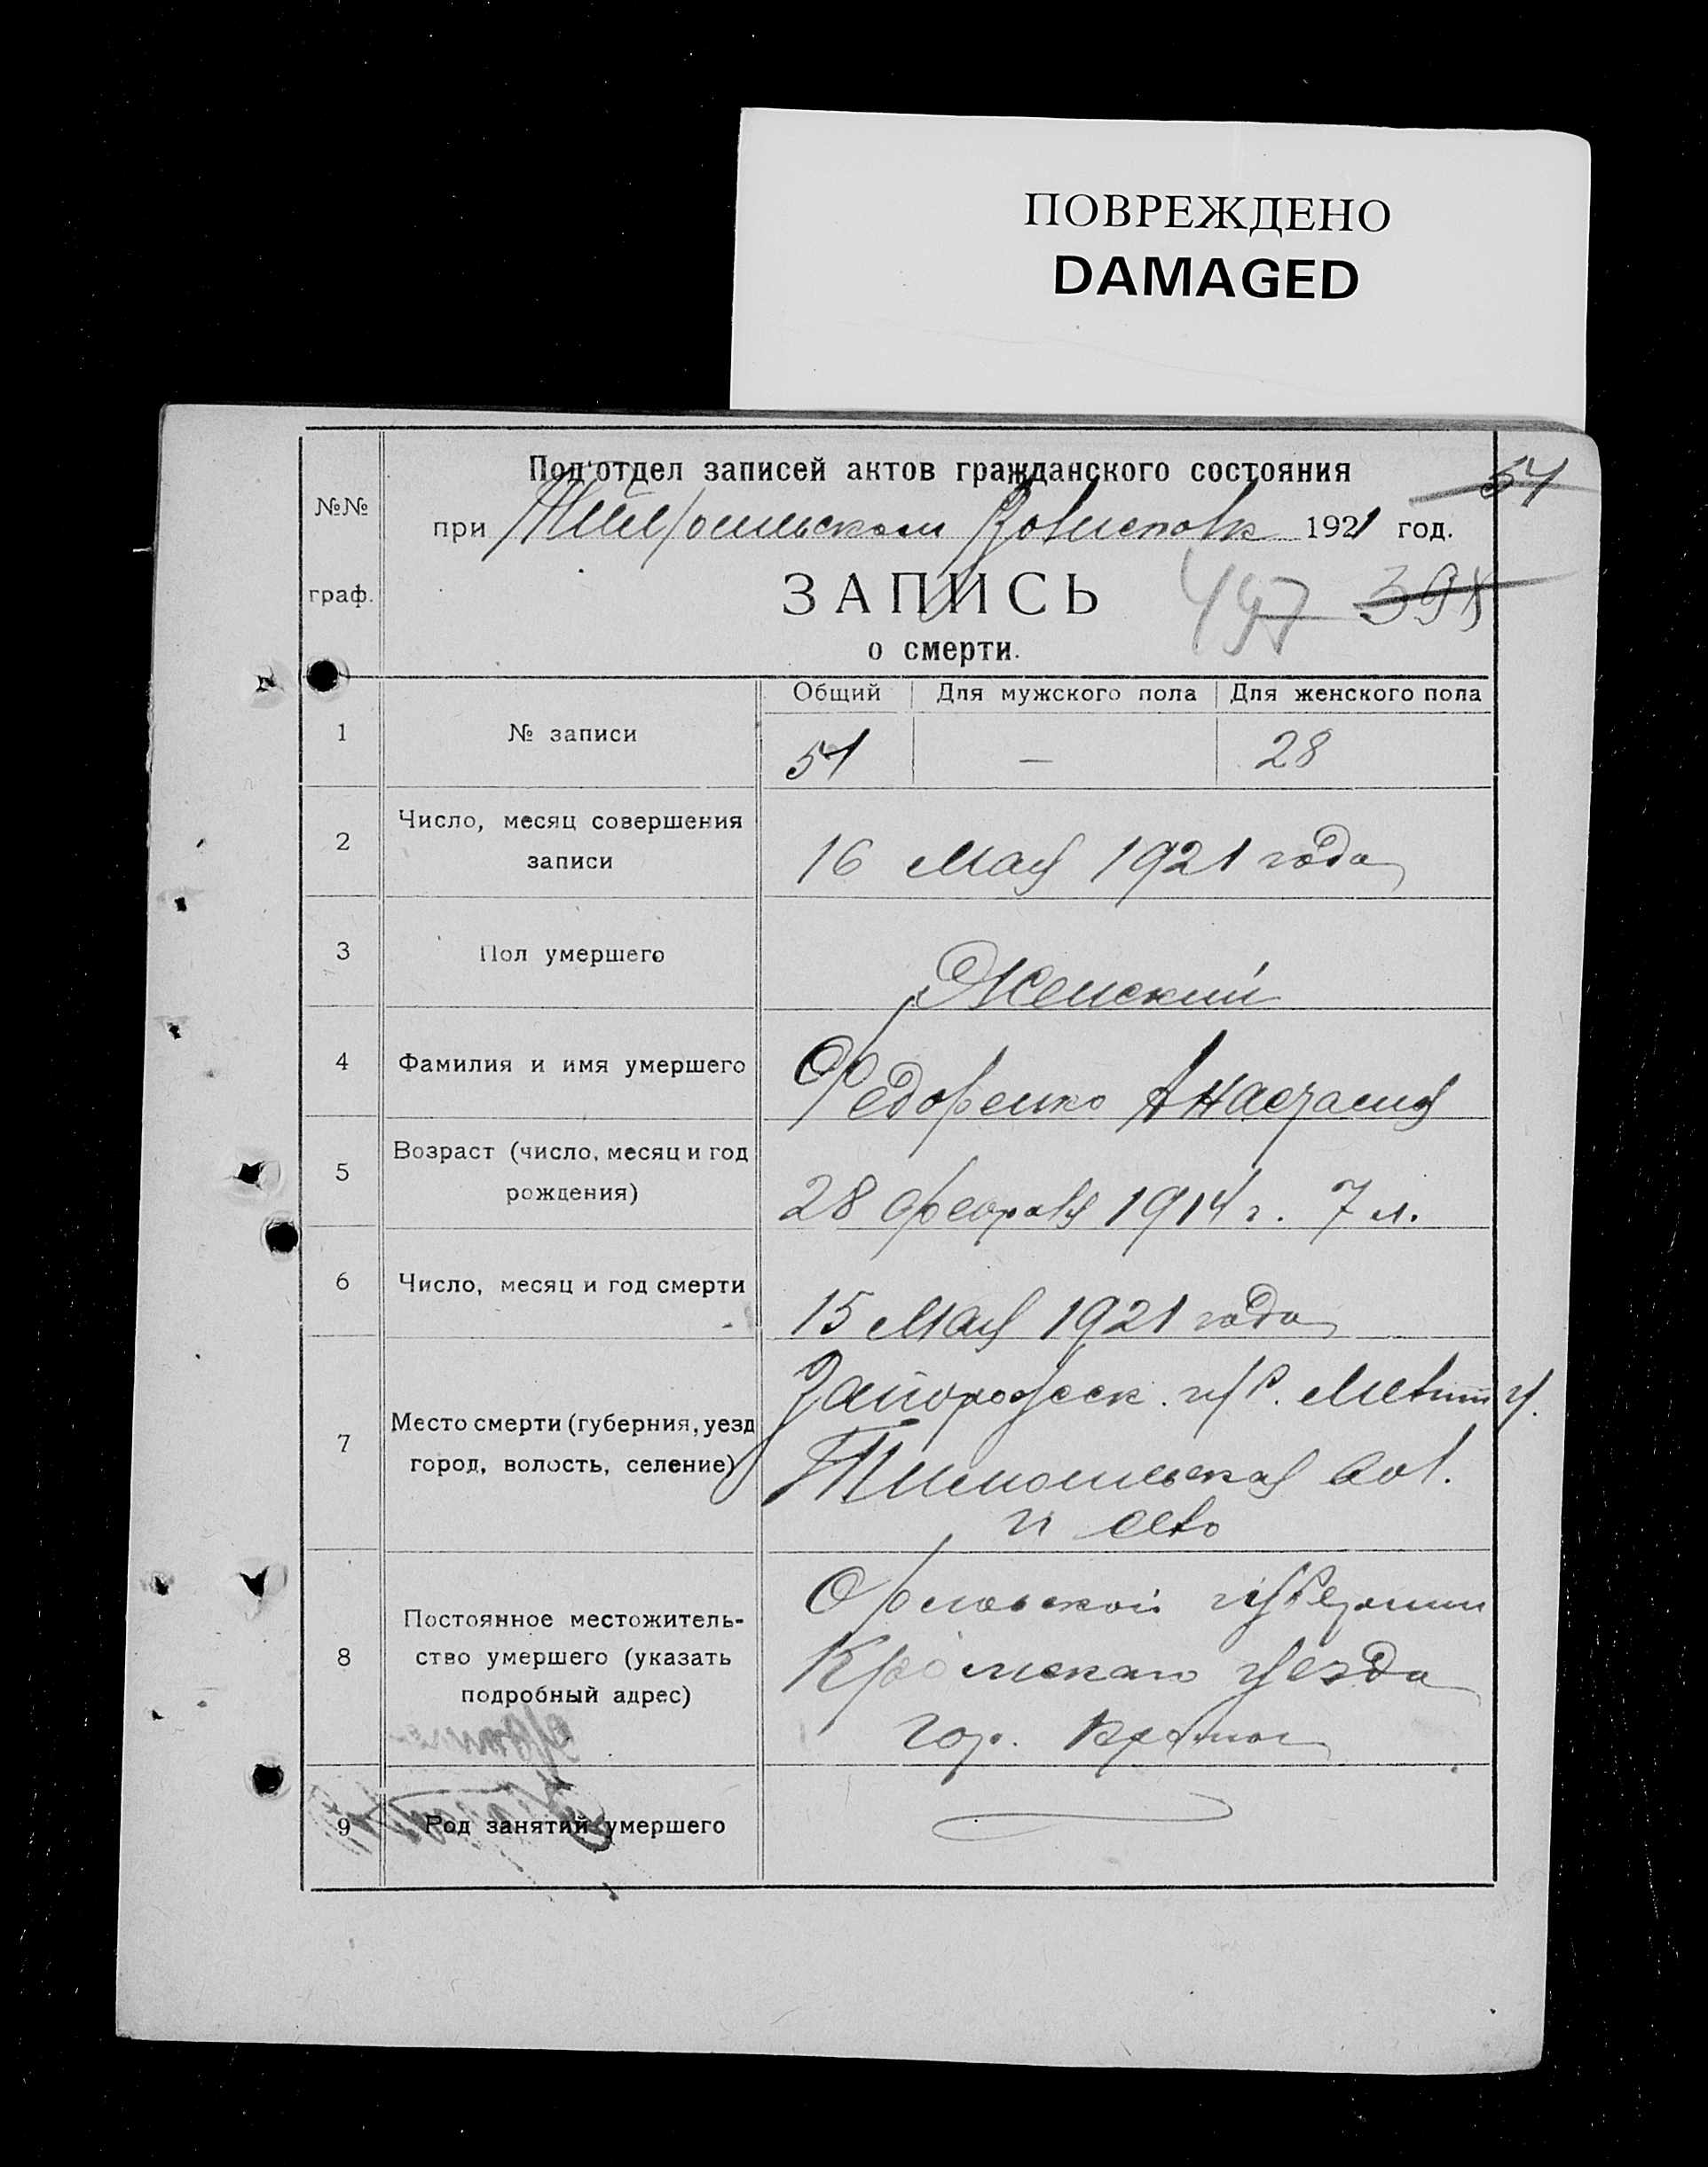 ПОВРЕЖДЕНО
DAMAGED
Под'отдел записей актов гражданского состояния
54
№№
при Волисполк 1921 год.
граф.
ЗАПИСЬ
497
о смерти.
Общий Для мужского пола Для женского пола
1 № записи 54 — 28
2 Число, месяц совершения
записи
16 Мая 1921 года
3 Пол умершего Женский
4 Фамилия и имя умершего Федоренко Анастасия
5 Возраст (число, месяц и год
рождения)
28 февраля 1914 г. 7 л.
6 Число, месяц и год смерти 15 Мая 1921 года
Запорожск. губ. Мелит у.
7 Место смерти (губерния, уезд
город, волость, селение)
вол.
и село
8 Постоянное местожитель-
ство умершего (указать
подробный адрес)
Орловской губернии
Кромского уезда
гор. Кромы
9 Род занятий умершего